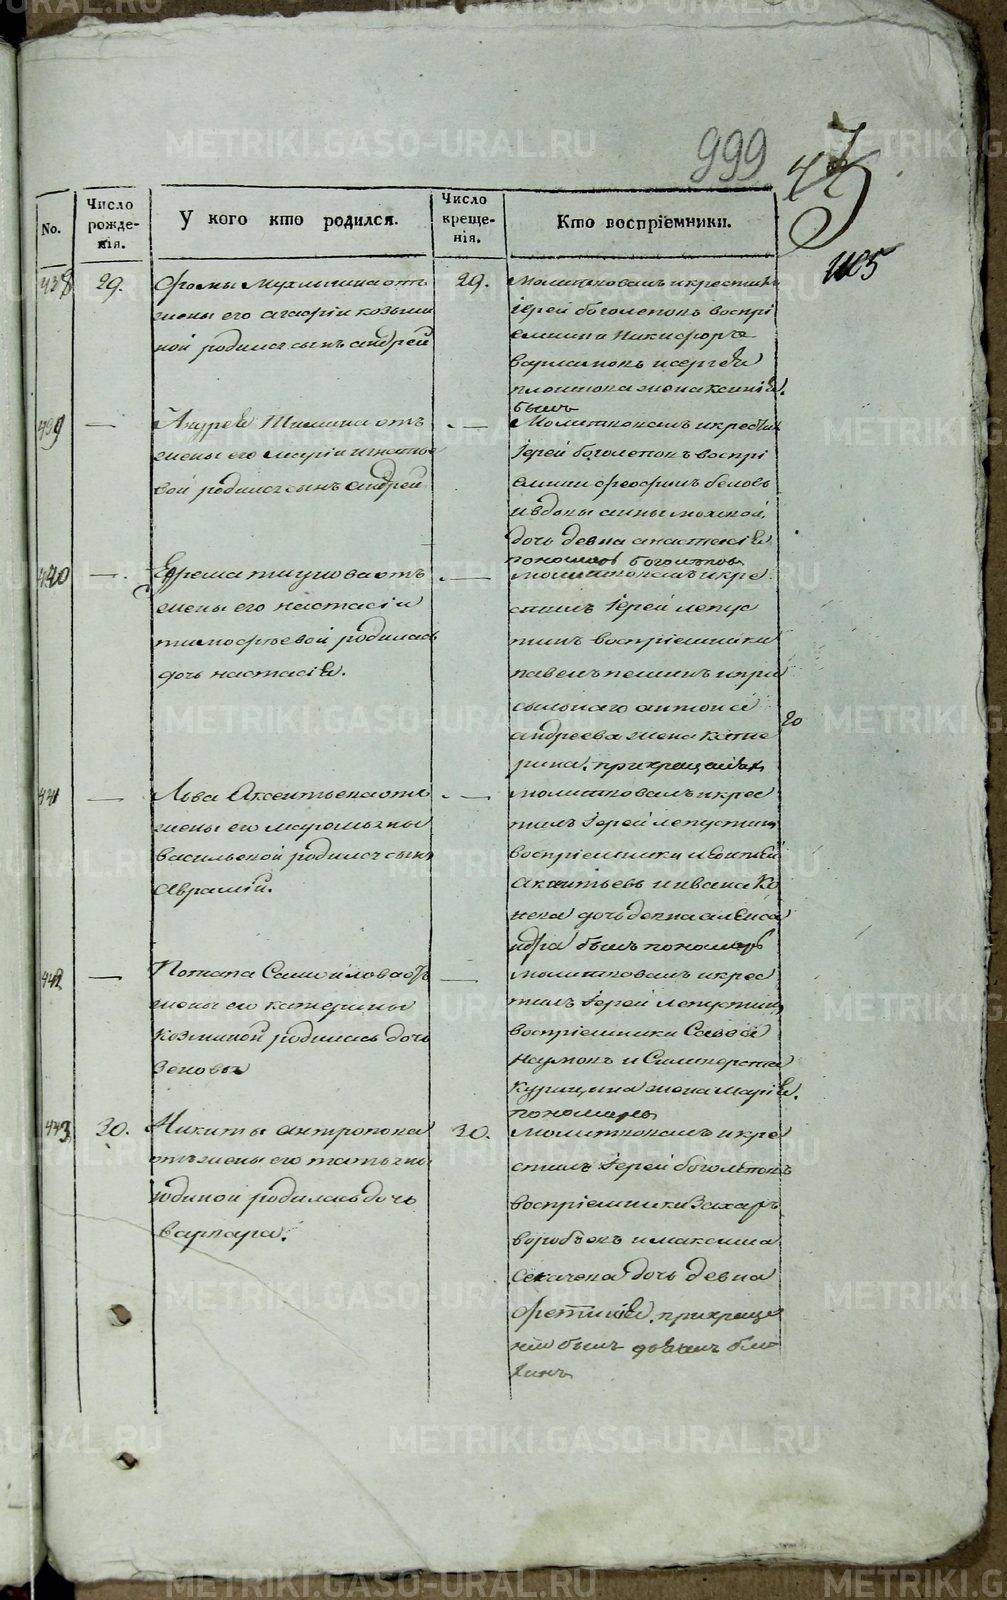 METRIKI.GASO-URAL.RU
999
1105
No.
Число рожде-нія.
У кого кто родился.
Число креще-нія.
Кто воспріемники.
438
29.
Фомы Мухлынина отъ
жены его агафіи козьми
ной родился сынъ андрей
29.
молитвовалъ и крестилъ
іерей боголеповъ воспрі
емники Никифоръ
варламовъ и сергея
плотникова жена ксенія.
былъ
439
—
Андрея Тимина отъ
жены его маріи игнатье
вой родился сынъ андрей
—
Молитвовалъ и крестилъ
іерей боголеповъ воспрі
емники феофилъ беловъ
и вдовы анны
дочь девка анастасія
пономарь боголеповъ
440
—
Ефрема тиунова отъ
жены его настасіи
тимофѣевой родилась
дочь настасія.
—
молитвовалъ и кре
стилъ іерей лепус
тинъ воспріемники
павелъ и при
сыльнаго антона
20
андреева жена кате
рина. прикрещеніи
441
—
Льва Аксентьева отъ
жены его маремьяны
васильевой родился сынъ
Аврамій.
—
молитвовалъ и крес
тилъ іерей лепустинъ
воспріемники леонтей
аксентьевъ и ивана Ко
нева дочь девка алекса
ндра былъ пономарь
442
—
Потапа Самойлова отъ
жены его катерины
козминой родилась дочь
Зеновья
—
молитвовалъ и крес
тилъ іерей лепустинъ
воспріемники Савва
наумовъ и Силиверста
Курицына жена марія.
пономарь
443
30.
Никиты антропова
отъ жены его татьяны
юдиной родилась дочь
варвара.
30.
молитвовалъ и кре
стилъ іерей боголѣповъ
воспріемники Захаръ
воробьевъ и максима
секачева дочь девка
фетинія. прикреще
ніи былъ дьячекъ